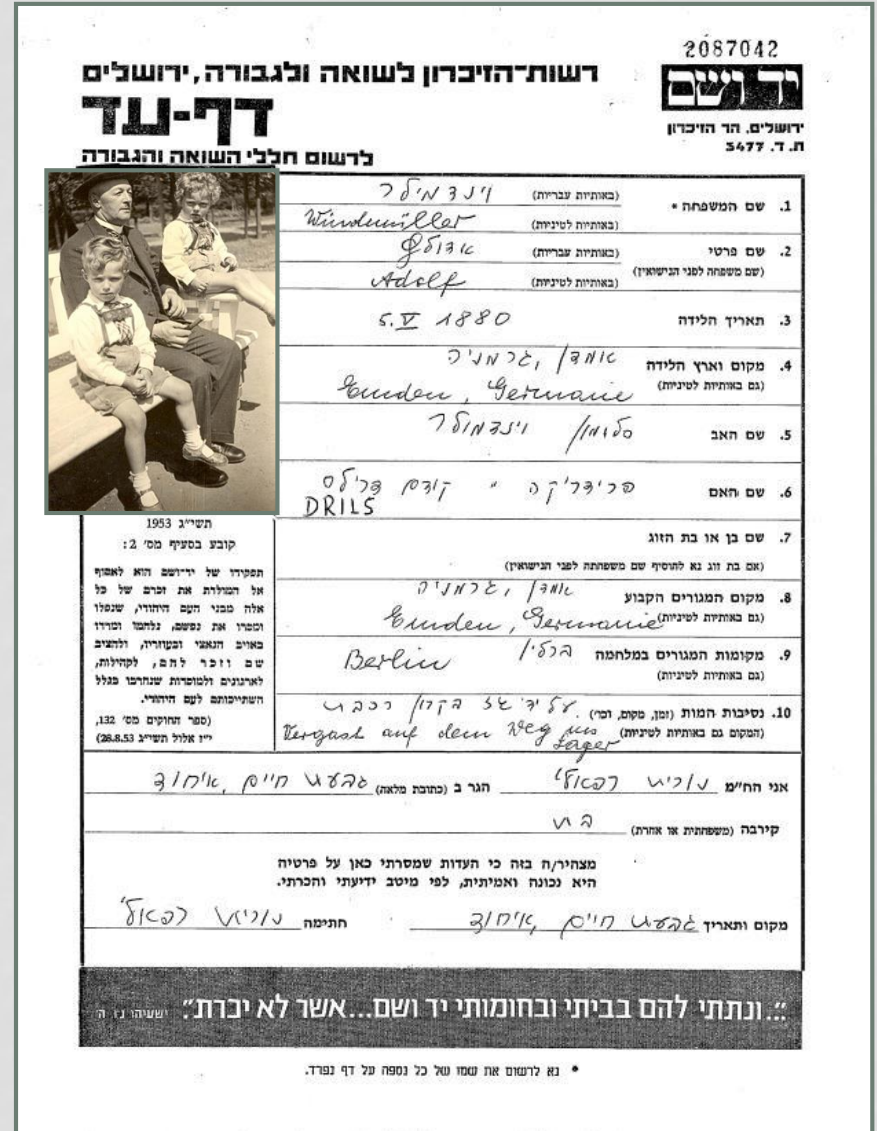 2087042
רשות-הזיכרון לשואה ולגבורה, ירושלים
יד ושם
דף-עד
ירושלים, הר הזיכרון
ת. ד. 3477
לרשום חללי השואה והגבורה
1. שם המשפחה * (באותיות עבריות) וינדמילר
(באותיות לטיניות) Windmüller
2. שם פרטי (באותיות עבריות) אדולף
(שם משפחה לפני הנישואין) (באותיות לטיניות) Adolf
3. תאריך הלידה 5. V 1880
4. מקום וארץ הלידה אמדן, גרמניה
(גם באותיות לטיניות) Emden, Germanie
5. שם האב סלומון וינדמולר
6. שם האם פרידריקה " קודם דרילס
DRILS
7. שם בן או בת הזוג
(אם בת זוג נא להוסיף שם משפחתה לפני הנישואין)
8. מקום המגורים הקבוע אמדן, גרמניה
(גם באותיות לטיניות) Emden, Germanie
9. מקומות המגורים במלחמה ברלין
(גם באותיות לטיניות) Berlin
10. נסיבות המות (זמן, מקום, וכו') על ידי גז בקרון רכבת
(המקום גם באותיות לטיניות) Vergast auf dem Weg ins
Lager
תשי"ג 1953
קובע בסעיף מס' 2:
תפקידו של יד-ושם הוא לאסוף
אל המולדת את זכרם של כל
אלה מבני העם היהודי, שנפלו
ומסרו את נפשם, נלחמו ומרדו
באויב הנאצי ובעוזריו, ולהציב
שם וזכר להם, לקהילות,
לארגונים ולמוסדות שנחרבו בגלל
השתייכותם לעם היהודי.
(ספר החוקים מס' 132,
י"ז אלול תשי"ג 28.8.53)
אני הח"מ נורית רפאלי הגר ב (כתובת מלאה) גבעת חיים, איחוד
קירבה (משפחתית או אחרת) בת
מצהיר/ה בזה כי העדות שמסרתי כאן על פרטיה
היא נכונה ואמיתית, לפי מיטב ידיעתי והכרתי.
מקום ותאריך גבעת חיים, איחוד חתימה נורית רפאלי
"...ונתתי להם בביתי ובחומותי יד ושם...אשר לא יכרת". ישעיהו נו, ה'
* נא לרשום את שמו של כל נספה על דף נפרד.